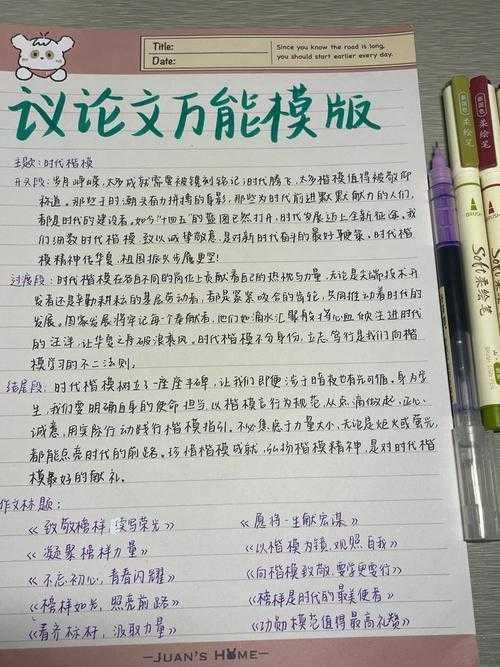 Title:
Date:
Since you know the road is long,
you should start earlier every day.
议论文万能模版
主题：时代楷模
开头段：岁月峥嵘，太多成就需要被镌刻铭记；时代腾飞，太多楷模值得被敬仰
称道。那些于时代朝夕奋力拼搏的身影，那些为时代前进默默献力的人们，
都是时代的建设者。如今“十四五”的蓝图已然打开，时代发展迈上全新征程。我
们细数时代楷模，致以诚挚敬意，是对新时代奋斗的最好鞭策。时代楷
模精神化华夏，祖国振兴步履更坚！
过渡段：时代楷模在各自不同的岗位上贡献着自己的热忱与力量，无论是尖端技术开
发者还是辛勤耕耘的基层劳动者，都似紧紧咬合的齿轮，共同推动着时代的
发展。国家发展将牢记每个奉献者，他们如滴水汇聚般将心血倾注进时代
的汪洋，让华夏之舟破浪乘风。时代楷模不分身份，立志笃行是我们向楷
模学习的不二法则。
结尾段：时代楷模树立了一座座丰碑，让我们即便涉于暗夜也有光可循。身为学
生，我们要明确自身的使命担当，以楷模言行为规范，从点滴做起，正心
诚意，用实际行动践行楷模指引。不必焦虑于力量大小，无论是炬火或萤光，
都能点亮时代的前路。珍惜楷模成就，弘扬楷模精神，是对时代楷
模最好的献礼。
作文标题：
《致敬榜样，续写荣光》 《愿将一生献宏谋》
《凝聚榜样力量》 《以楷模为镜，观照自我》
《不忘初心，青春闪耀》 《向楷模致敬，要学更要行》
《榜样如光，照亮前路》 《榜样是时代的最美使者》
《看齐标杆，汲取力量》 《功勋模范值得最高礼赞》
JUAN'S HOME